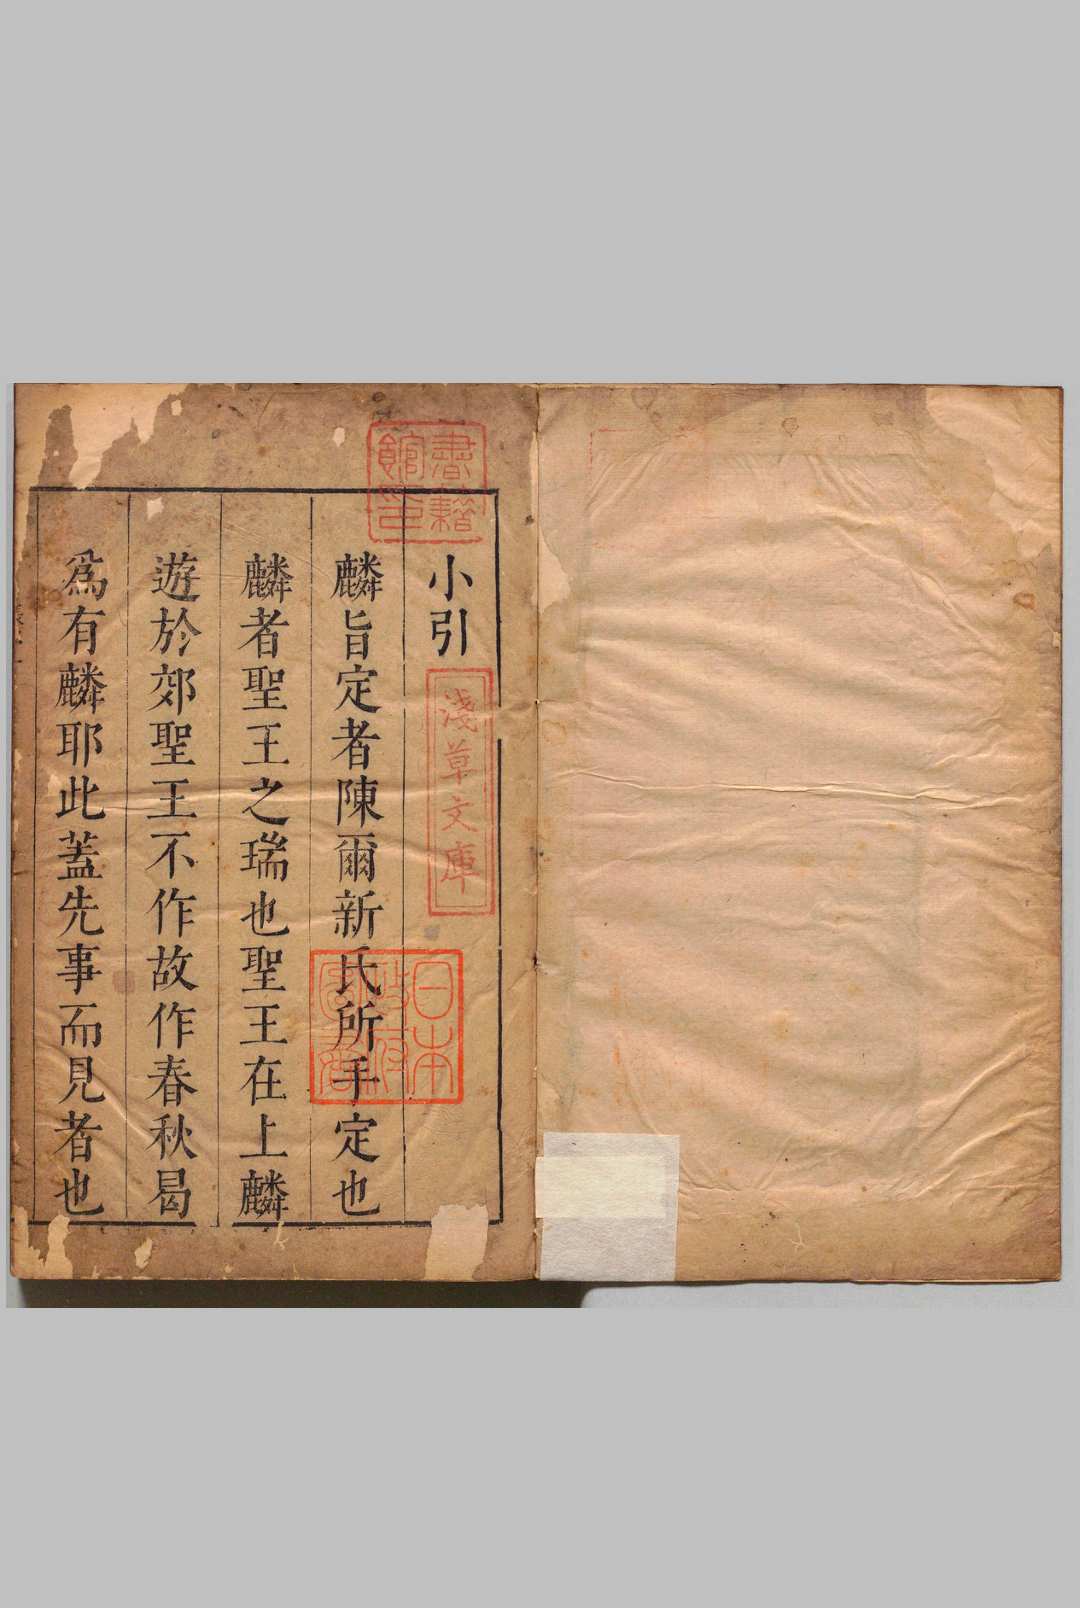 小引
麟旨定者陳爾新氏所手定也
麟者聖王之瑞也聖王在上麟
遊於郊聖王不作故作春秋曷
爲有麟耶此蓋先事而見者也
書籍館印
淺草文庫
日本政府圖書